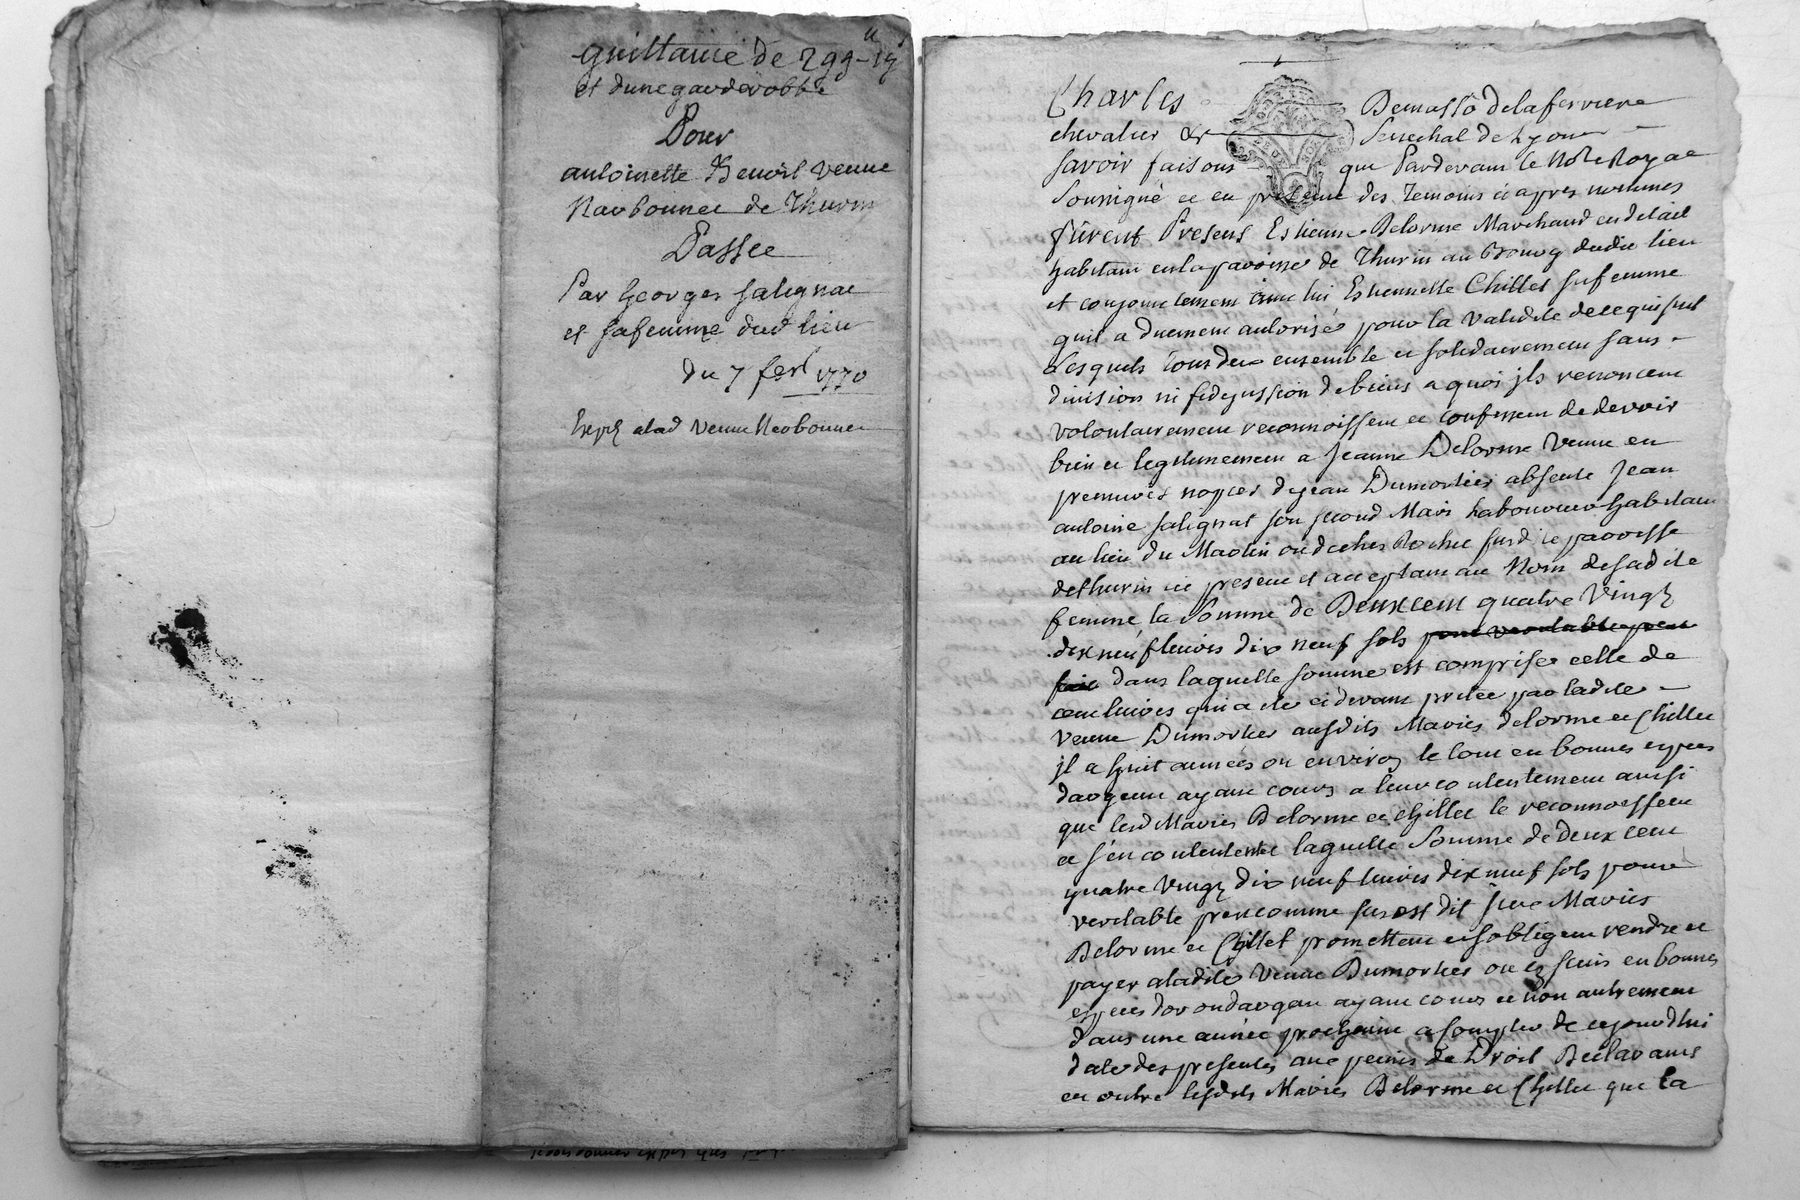 quittance de 299ᵗᵗ-19ˢ
et dune garderobbe
Pour
antoinette Benoît veuve
Narbonnee de Thurin
Passee
Par Georges Salignac
et safemme dud lieu
du 7 fevʳ 1770
Expᵉ alad veuve Narbonnee
Charles Demasso delaferriere
chevalier &c Senechal de Lyon
savoir faisons que Pardevant le Noʳᵉ Royal
soussigné et en presence des temoins ci apres nommés
fûrent Presens Estienne Delorme Marchand en detail
habitant enla paroisse de Thurin au Bourg dudit lieu
et conjointement avec lui Estiennette Chillet safemme
quil a duement autorisée pour la validité dece quisuit
Lesquels tous deux ensemble et solidairement sans
division ni fidejussion debiens a quoi jls renoncent
volontairement reconnoissent et confessent de devoir
bien et legitimement a Jeanne Delorme veuve en
premieres nopces dejean Dumortier absente Jean
antoine salignat son second Mari Laboureur habitant
au lieu du Maolin ou dechez Rochee susd paroisse
dethurin ici present et acceptant au Nom desadite
femme la somme de Deuxcent quatre vingt
dixneuf livres dix neuf sols pour veritable pret
fait dans laquelle somme est comprise celle de
cent livres qui a eté cidevant pretée par ladite
veuve Dumortier ausdits Mariés delorme et Chillet
jl a huit années ou environ le tout en bonnes especes
dargent ayant cours a leur contentement ainsi
que lesd Mariés Delorme et Chillet le reconnoissent
et s'en contentent laquelle somme de deux cent
quatre vingt dix neuf livres dix neuf sols pour
veritable pret comme susest dit Iceux Mariés
Delorme et Chillet promettent et sobligent rendre et
payer aladite veuve Dumortier ou es siens en bonnes
especes dor ou dargent ayant cours et non autrement
dans une année prochaine a compter de cejourdhui
date des presentes aux peines de Droit Declarants
en outre lesdits Mariés Delorme et Chillet que la